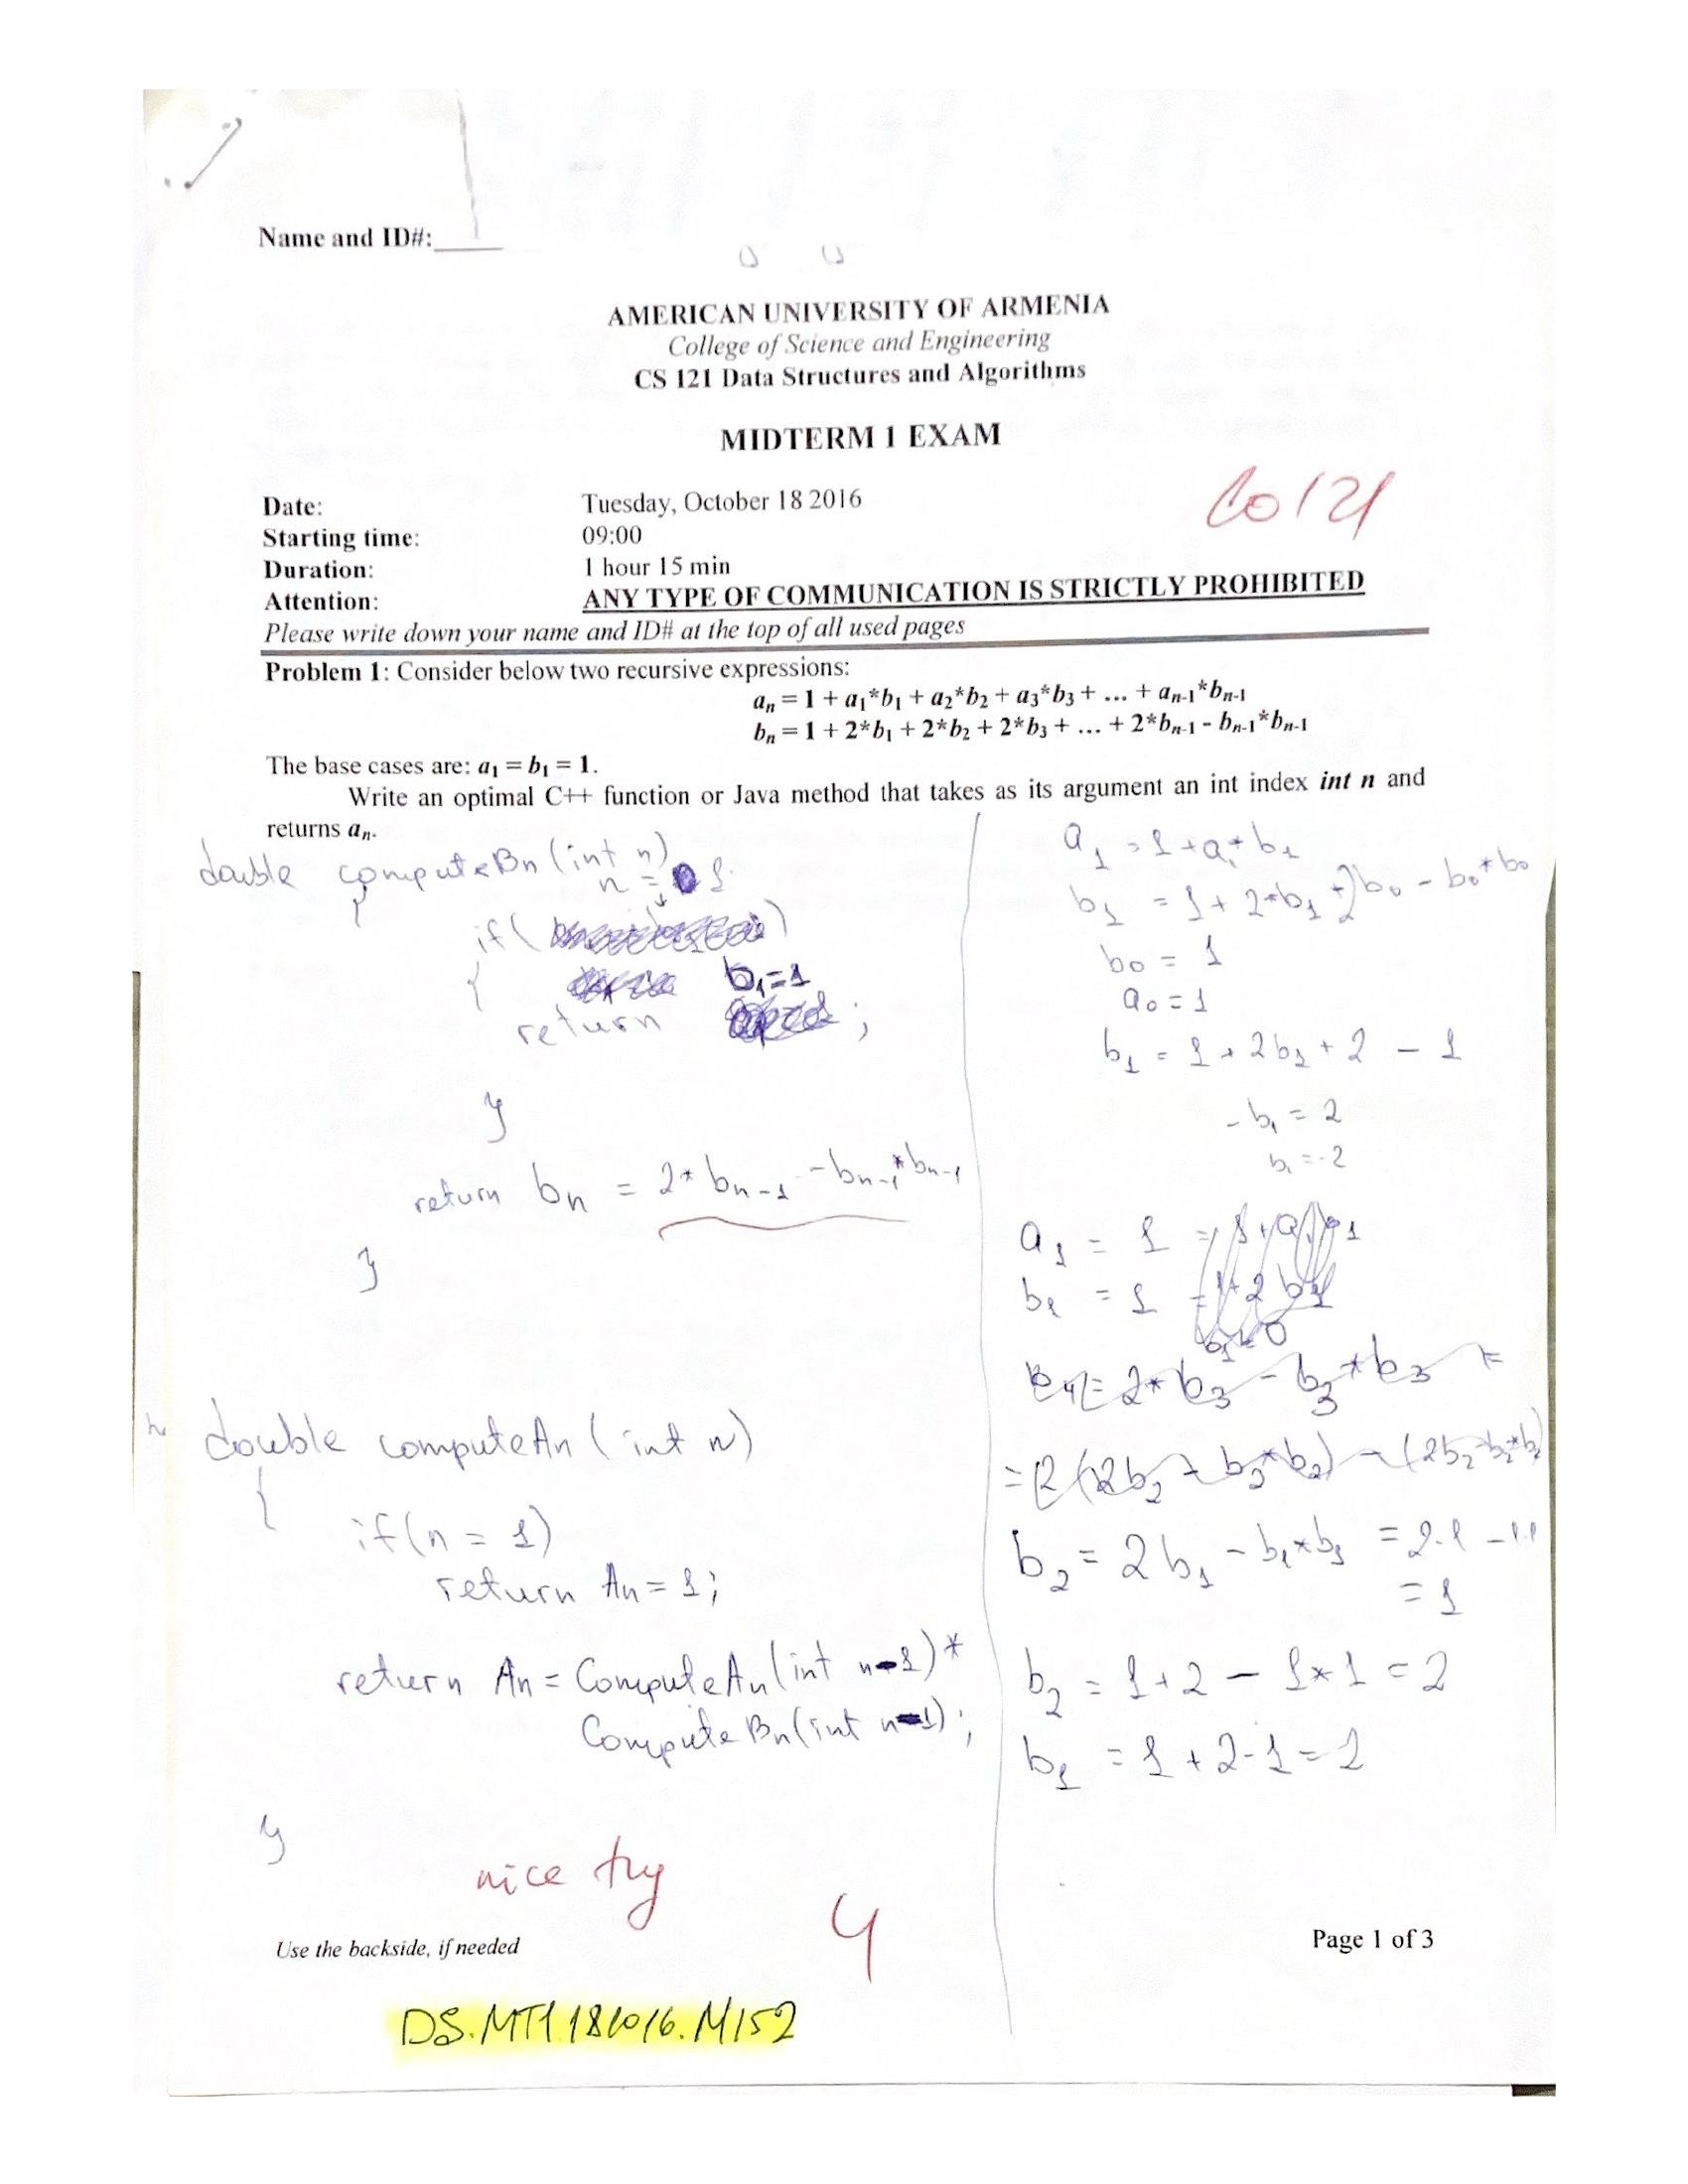 Name and ID#:
AMERICAN UNIVERSITY OF ARMENIA
College of Science and Engineering
CS 121 Data Structures and Algorithms
MIDTERM 1 EXAM
Date: Tuesday, October 18 2016
Starting time: 09:00
Duration: 1 hour 15 min
Attention: ANY TYPE OF COMMUNICATION IS STRICTLY PROHIBITED
Please write down your name and ID# at the top of all used pages
Problem 1: Consider below two recursive expressions:
aₙ = 1 + a₁*b₁ + a₂*b₂ + a₃*b₃ + ... + aₙ₋₁*bₙ₋₁
bₙ = 1 + 2*b₁ + 2*b₂ + 2*b₃ + ... + 2*bₙ₋₁ - bₙ₋₁*bₙ₋₁
The base cases are: a₁ = b₁ = 1.
Write an optimal C++ function or Java method that takes as its argument an int index int n and
returns aₙ.
double computeBn (int n)
{
n = 1
if( )
{
b₁=1
return ;
}
return bₙ = 2* bₙ₋₁ - bₙ₋₁*bₙ₋₁
}
double computeAn ( int n)
{
if(n = 1)
return An = 1;
return An = ComputeAn(int n-1)*
ComputeBn(int n-1);
}
a₁ = 1 + a₁* b₁
b₁ = 1 + 2*b₁ + 2b₀ - b₀*b₀
b₀ = 1
a₀ = 1
b₁ = 1 + 2b₁ + 2 - 1
-b₁ = 2
b₁ = -2
a₁ = 1
b₁ = 1
b₄ = 2* b₃ - b₃*b₃ =
b₂ = 2b₁ - b₁*b₁ = 2·1 - 1·1
= 1
b₂ = 1+2 - 1*1 = 2
b₁ = 1 + 2-1 = 2
nice try
4
Use the backside, if needed
Page 1 of 3
DS.MT1.181016.M152